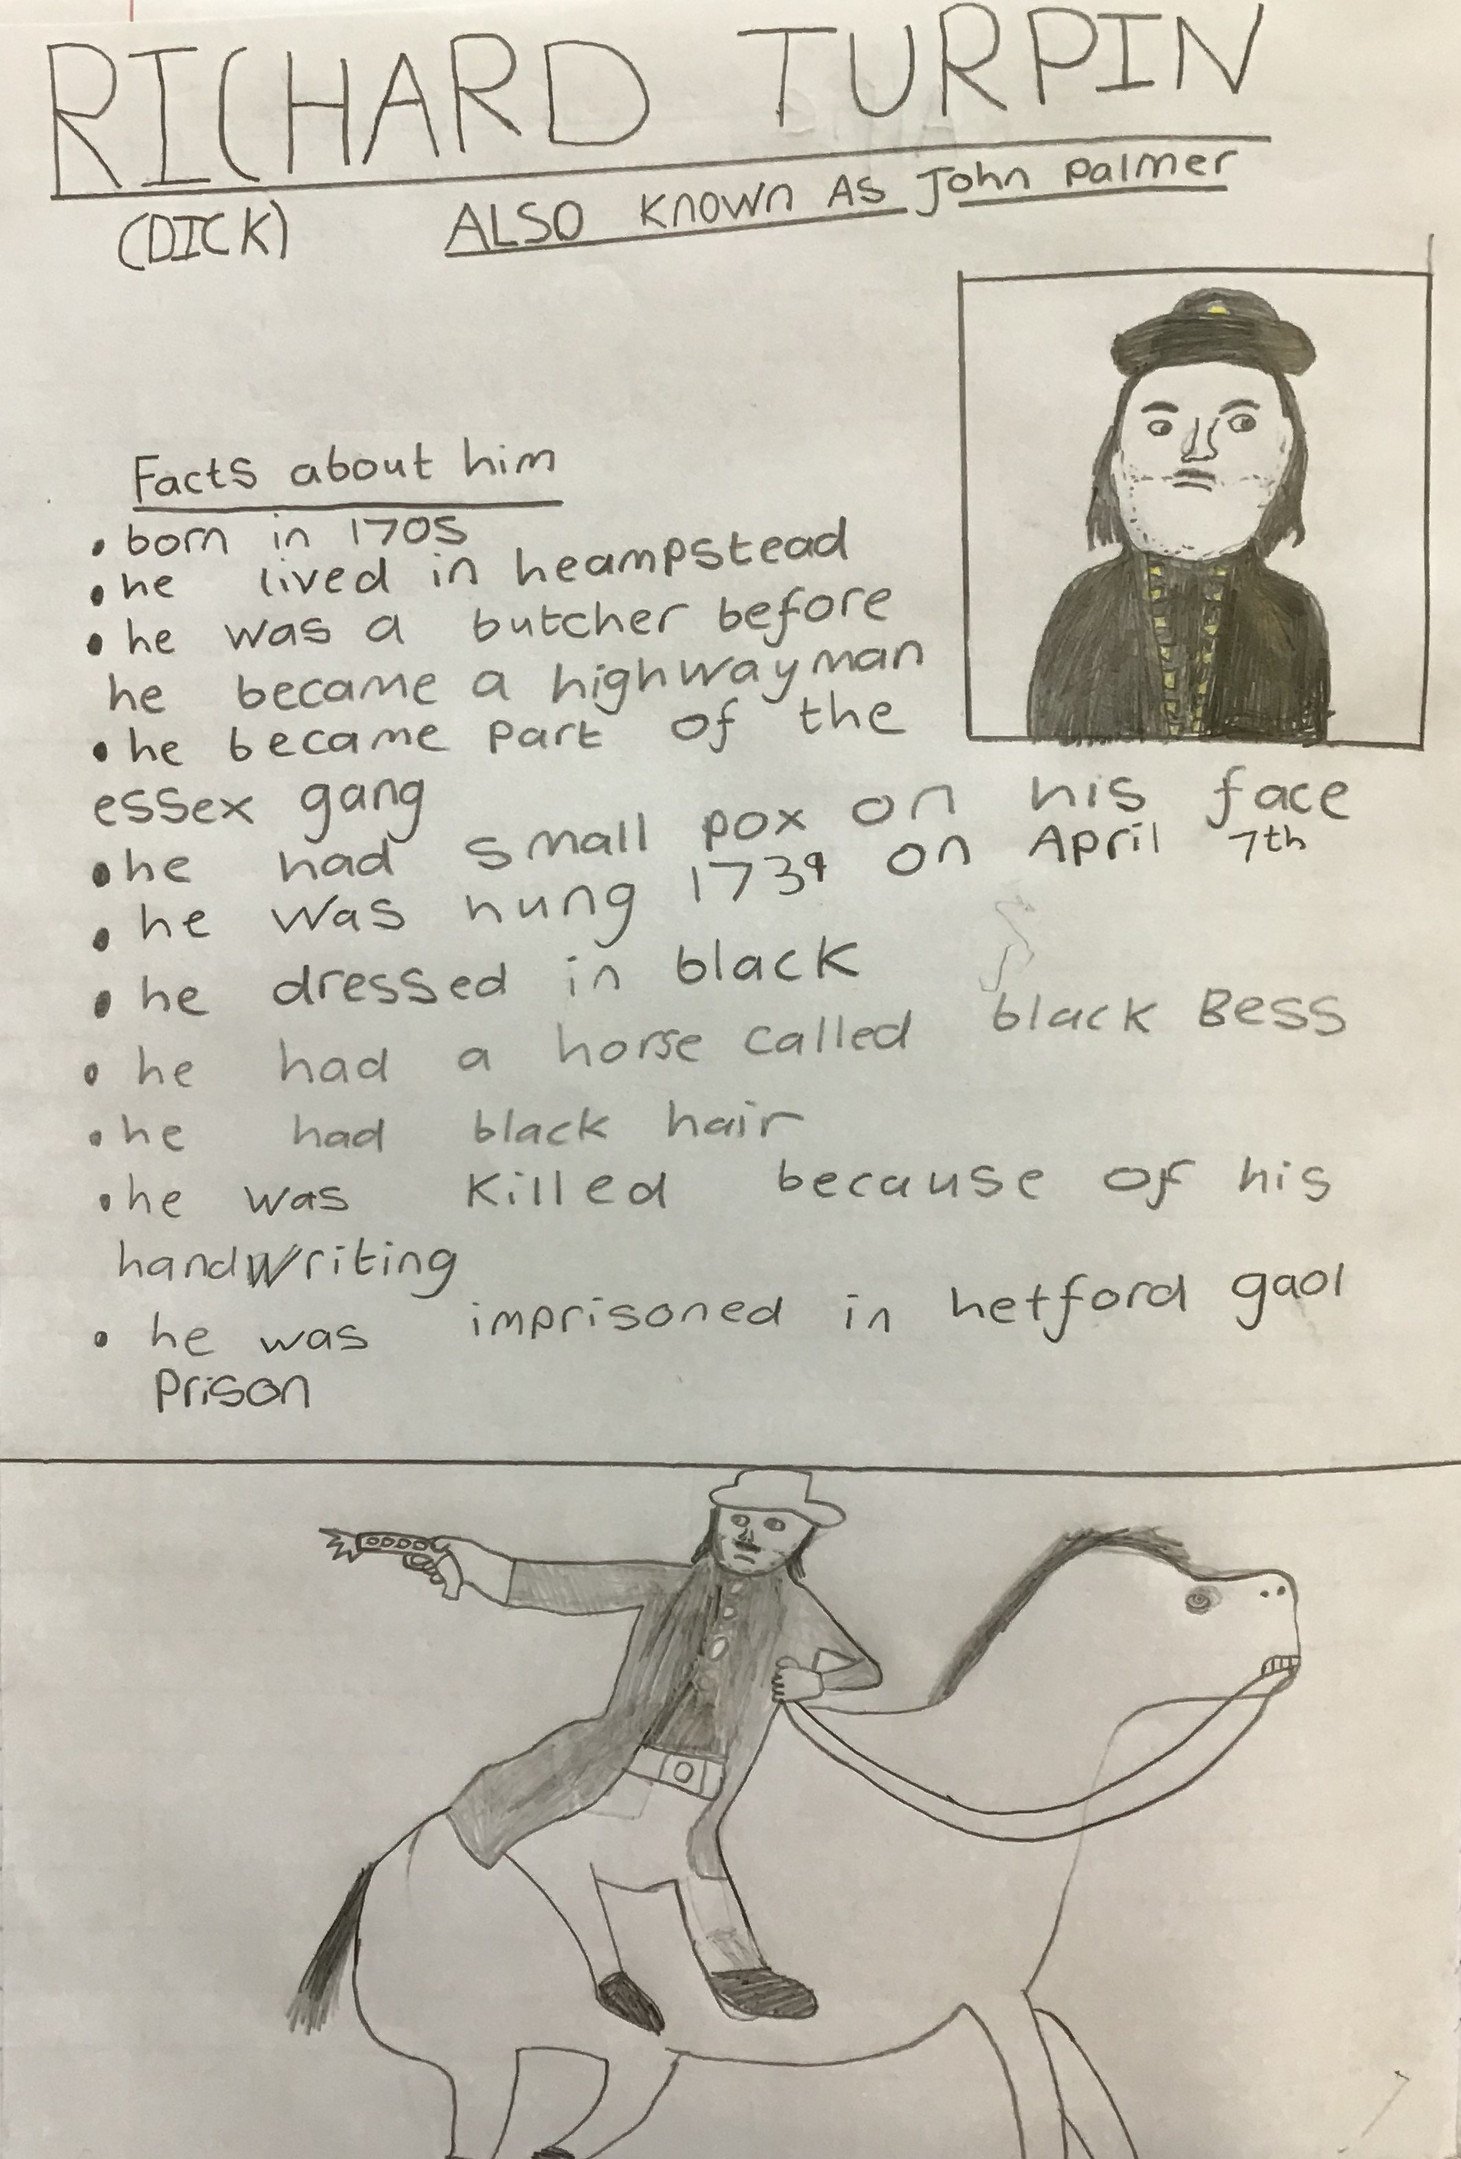 RICHARD TURPIN
(DICK) ALSO Known As John Palmer
Facts about him
• born in 1705
• he lived in heampstead
• he was a butcher before
he became a highwayman
• he became part of the
essex gang
• he had small pox on his face
• he was hung 1739 on April 7th
• he dressed in black
• he had a horse called black Bess
• he had black hair
• he was killed because of his
handwriting
• he was imprisoned in hetford gaol
prison